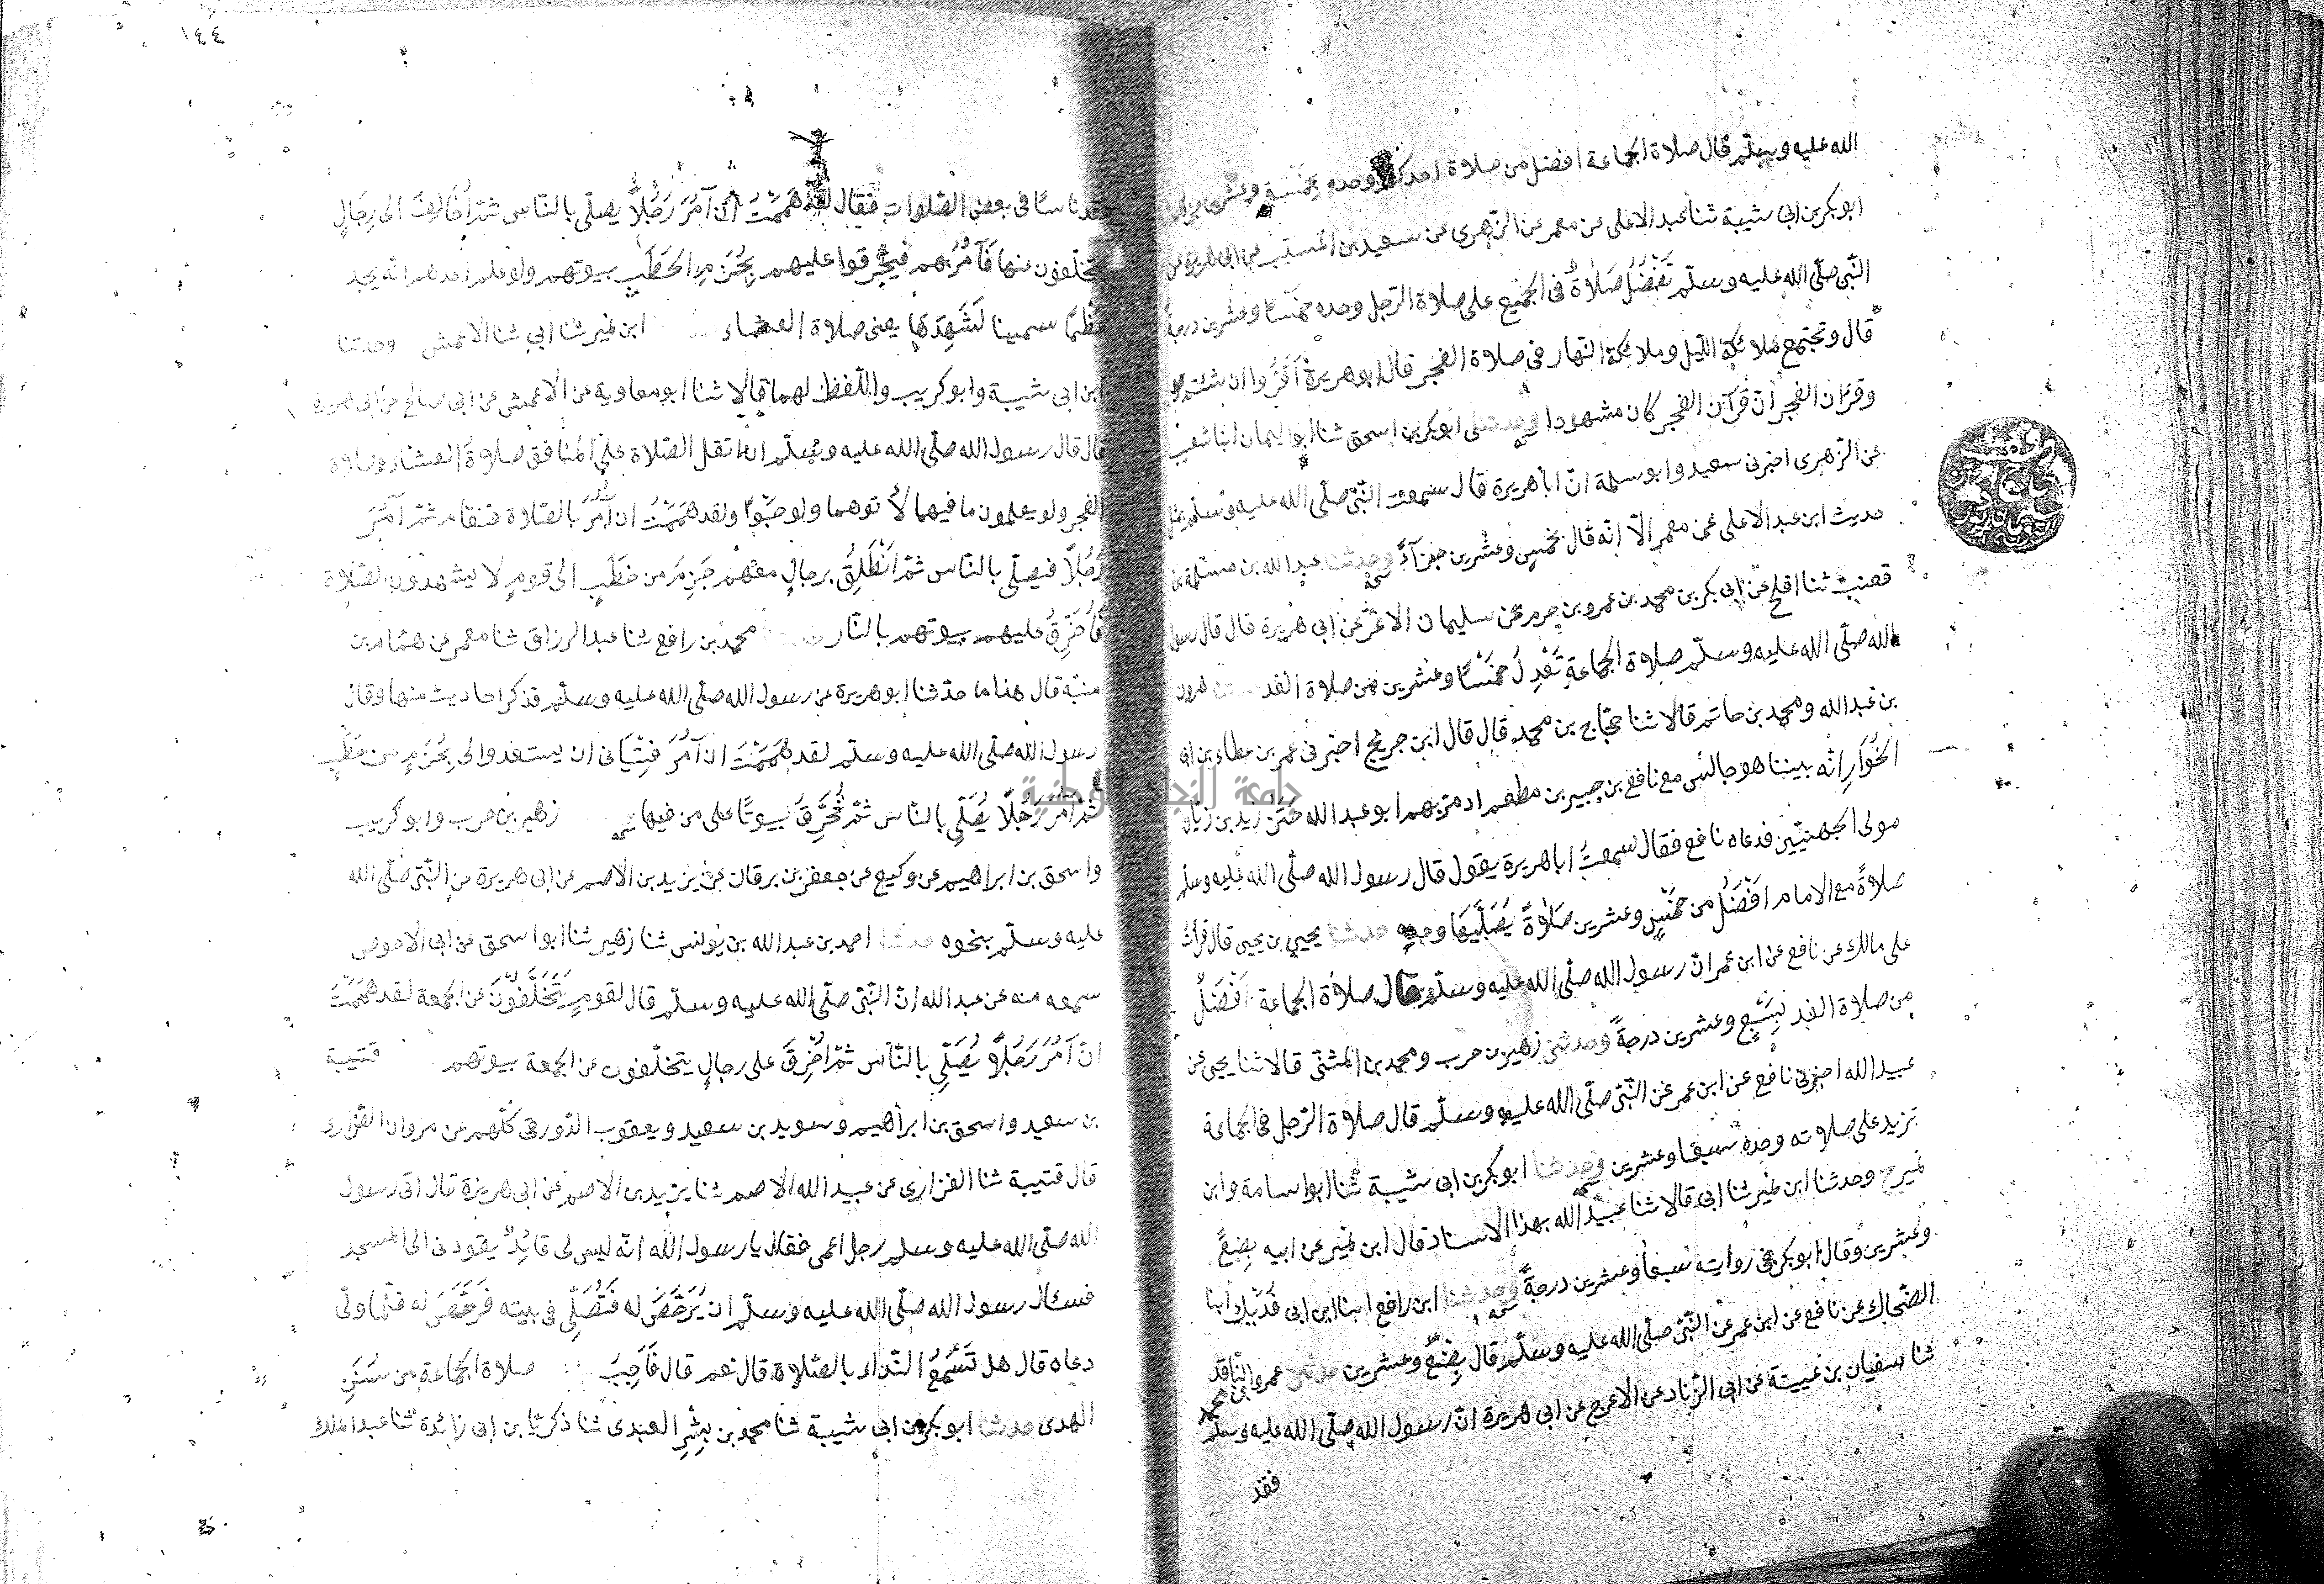 الله عليه وسلم قال صلاة الجماعة افضل من صلاة احدكم وحده بخمسة وعشرين جزءا
ابو بكر بن ابى شيبة ثنا عبد الاعلى عن معمر عن الزهرى عن سعيد بن المسيب عن ابى هريرة عن
النّبى صلّى الله عليه وسلّم تَفْضُلُ صَلاةٌ فى الجميع على صلاة الرّجل وحده خَمْسًا وعشرين درجةً
قال وتجتمع ملائكة اللّيل وملائكة النّهار فى صلاة الفجر قال ابو هريرة اقرؤا ان شئتم
وقرآن الفجر انّ قرآن الفجر كان مشهودا وحدثنى ابو بكر بن اسحق ثنا ابو اليمان ابنا شعيب
عن الزّهرى اخبرنى سعيد وابو سلمة انّ ابا هريرة قال سمعت النّبى صلّى الله عليه وسلّم بمثل
حديث ابن عبد الاعلى عن معمر الّا انّه قال بخمس وعشرين جزآءً وحدثنا عبد الله بن مسلمة بن
قعنب ثنا افلح عن ابى بكر بن محمد بن عمرو بن حزم عن سليمان الاغرّ عن ابى هريرة قال قال رسول
الله صلّى الله عليه وسلّم صلاة الجماعةِ تَعْدِلُ خَمْسًا وعشرين من صلاة الفذ حدثنا هرون
بن عبدالله ومحمد بن حاتم قالا ثنا حجّاج بن محمد قال قال ابن جريج اخبرنى عمر بن عطاء بن ابى
الخُوَارِ انّه بينا هو جالس مع نافع بن جبير بن مطعم اذ مرّ بهم ابو عبد الله خَتَنُ زيد بن زبّان
مولى الجهنيّين فدعاه نافع فقال سمعتُ ابا هريرة يقول قال رسول الله صلّى الله عليه وسلّم
صلاةٌ مع الامام افْضَلُ من خَمْسٍ وعشرين صَلاةً يُصَلِّيهَا وحده حدثنا يحيى بن يحيى قال قرأت
على مالك عن نافع عن ابن عمر انّ رسول الله صلّى الله عليه وسلّم قال صلاة الجماعة اَفْضَلُ
من صلاة الفذ بِسَبْعٍ وعشرين درجةً وحدثنى زهير بن حرب ومحمد بن المثنّى قالا ثنا يحيى عن
عبيد الله اخبرنى نافع عن ابن عمر عن النّبّى صلّى الله عليه وسلّم قال صلاة الرّجل فى الجماعة
تزيد على صلاته وحده سبعا وعشرين وحدثنا ابو بكر بن ابى شيبة ثنا ابو اسامة وابن
نمير ح وحدثنا ابن نمير ثنا ابى قالا ثنا عبيد الله بهذا الاسناد قال ابن نمير عن ابيه بِضْعًا
وعشرين وقال ابو بكر فى روايته سبعا وعشرين درجةً وحدثنا ابن رافع ابنا ابن ابى فُدَيْك ابنا
الضّحاك عن نافع عن ابن عمر عن النّبّى صلّى الله عليه وسلّم قال بِضْعًا وعشرين حدثنى عمرو النّاقد
بن محمد
ثنا سفيان بن عيينة عن ابى الزّناد عن الاعرج عن ابى هريرة انّ رسول الله صلّى الله عليه وسلّم
فقد
١٤٤
فقد ناسًا فى بعض الصّلوات فقال لقد هَمَمْتُ ان آمُرَ رَجُلًا يصلّى بالنّاس ثمّ اُخَالِفَ الى رِجَالٍ
يتخلّفون عنها فَآمُرَ بهم فيُحَرِّقوا عليهم بِحُزَمِ الحَطَبِ بيوتهم ولو علم احدهم انّه يجد
عَظْمًا سمينا لَشَهِدَهَا يعنى صلاة العشاء ابن نمير ثنا ابي ثنا الاعمش وحدثنا
ابن ابى شيبة وابو كريب واللّفظ لهما قالا ثنا ابو معاوية عن الاعمش عن ابى صالح عن ابى هريرة
قال قال رسول الله صلّى الله عليه وسلّم ان اثقل الصّلاة على المنافق صلاة العشاء وصلاة
الفجر ولو يعلمون ما فيهما لأتوهما ولو حَبْوًا ولقد هَمَمْتُ ان آمُرَ بالصّلاة فتقام ثمّ آمُرَ
رَجُلًا فيصلّى بالنّاس ثمّ اَنْطَلِقُ برجالٍ معهم حُزَمٌ من حَطَبٍ الى قومٍ لا يشهدون الصّلاة
فَأُحَرِّقَ عليهم بيوتهم بالنّار محمد بن رافع ثنا عبد الرزاق ثنا معمر عن همّام بن
منبّه قال هذا ما حدّثنا ابو هريرة عن رسول الله صلّى الله عليه وسلّم فذكر احاديث منها وقال
رسول الله صلّى الله عليه وسلّم لقد هَمَمْتُ ان آمُرَ فِتْيَانى ان يستعدوا لى بِحُزَمٍ من حَطَبٍ
ثمّ آمُرَ رَجُلًا يُصَلّى بالنّاس ثمّ تُحَرَّقُ بيوتًا على من فيها زهير بن حرب وابو كريب
واسحق بن ابراهيم عن وكيع عن جعفر بن برقان عن يزيد بن الاصم عن ابى هريرة عن النّبّى صلّى الله
عليه وسلّم بنحوه حدثنا احمد بن عبد الله بن يونس ثنا زهير ثنا ابو اسحق عن ابى الاحوص
سمعه منه عن عبد الله انّ النّبّى صلّى الله عليه وسلّم قال لقومٍ يَتَخَلَّفُونَ عن الجمعة لقد هَمَمْتُ
ان آمُرَ رَجُلًا يُصَلِّى بالنّاس ثمّ اُحَرِّقَ على رجالٍ يتخلّفون عن الجمعة بيوتهم قتيبة
بن سعيد واسحق بن ابراهيم وسويد بن سعيد ويعقوب الدّورقى كلّهم عن مروان الفزارى
قال قتيبة ثنا الفزارى عن عبيد الله الاصم ثنا يزيد بن الاصم عن ابى هريرة قال اتى رسول
الله صلّى الله عليه وسلم رجل اعمى فقال يا رسول الله انّه ليس لى قائدٌ يقودنى الى المسجد
فسئال رسول الله صلّى الله عليه وسلّم ان يُرَخِّصَ له فَيُصَلِّى فى بيته فَرَخَّصَ له فلمّا ولّى
دعاه قال هل تَسْمَعُ النّداء بالصّلاة قال نعم قال فَاَجِبَ صلاة الجماعة من سُنَنِ
الهدى حدثنا ابو بكر بن ابى شيبة ثنا محمد بن بِشْرٍ العبدى ثنا زكريّا بن ابى زائدة ثنا عبد الملك
جامعة النجاح الوطنية